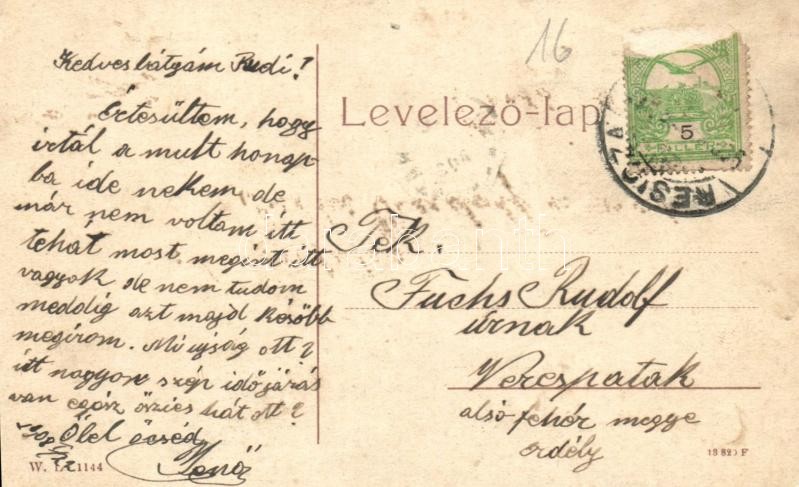 16
Kedves bátyám Rudi!
Értesültem, hogy
irtál a mult honap-
ba ide nekem de
már nem voltam itt
tehát most megint itt
vagyok de nem tudom
meddig azt majd később
megirom. Mi ujság ott?
itt nagyon szép időjárás
van egész hát ott?
Ölel öcséd
Jenő
1908
Levelező-lap
5
FILLÉR
RESICZA
Tek.
Fuchs Rudolf
úrnak
Verespatak
alsó fehér megye
erdély
W. L. 1144
13 820 F
darabanth